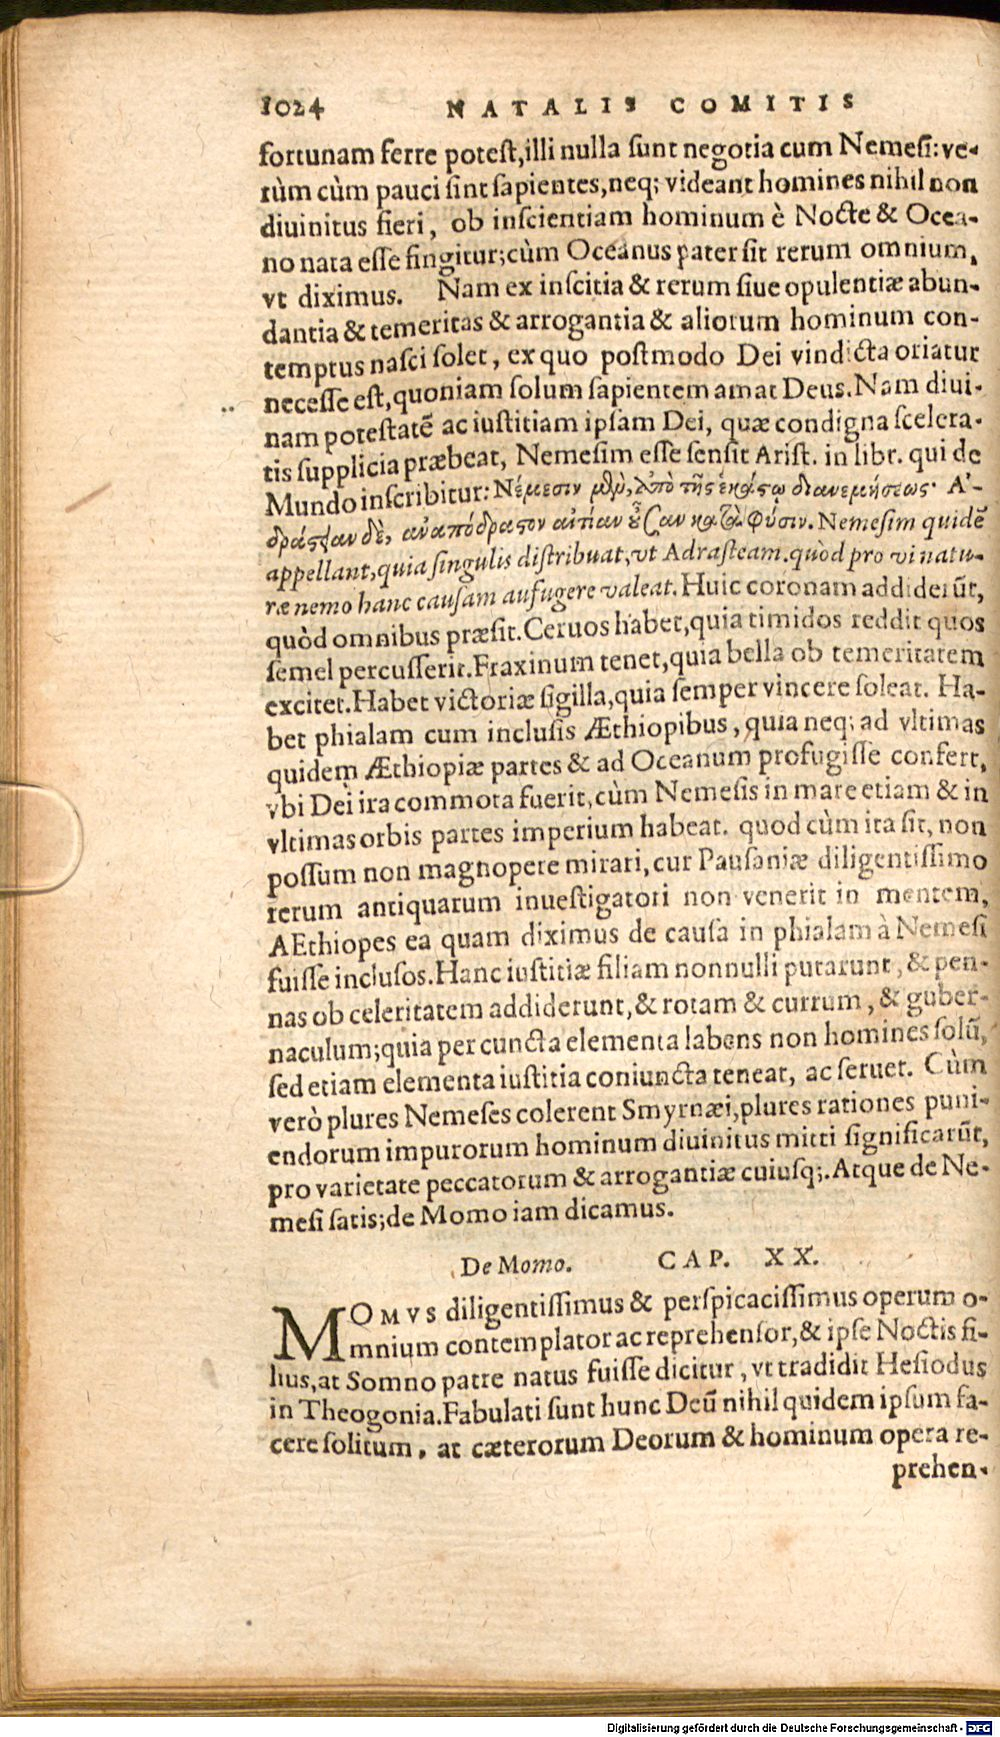 1024 NATALIS COMITIS
fortunam ferre potest, illi nulla sunt negotia cum Nemesi: ve-
rùm cùm pauci sint sapientes, neq; videant homines nihil non
diuinitus fieri, ob inscientiam hominum è Nocte & Ocea-
no nata esse fingitur; cùm Oceanus pater sit rerum omnium,
vt diximus. Nam ex inscitia & rerum siue opulentiæ abun-
dantia & temeritas & arrogantia & aliorum hominum con-
temptus nasci solet, ex quo postmodo Dei vindicta oriatur
necesse est, quoniam solum sapientem amat Deus. Nam diui-
nam potestatē ac iustitiam ipsam Dei, quæ condigna scelera-
tis supplicia præbeat, Nemesim esse sensit Arist. in libr. qui de
Mundo inscribitur: Νέμεσιν μὲν, ἀπὸ τῆς ἑκάστῳ διανεμήσεως· Ἀ-
δράστειαν δὲ, ἀναπόδραστον αἰτίαν οὖσαν κατὰ φύσιν. Nemesim quidē
appellant, quia singulis distribuat, vt Adrasteam. quòd pro vi natu-
ræ nemo hanc causam aufugere valeat. Huic coronam addiderūt,
quòd omnibus præsit. Ceruos habet, quia timidos reddit quos
semel percusserit. Fraxinum tenet, quia bella ob temeritatem
excitet. Habet victoriæ sigilla, quia semper vincere soleat. Ha-
bet phialam cum inclusis Æthiopibus, quia neq; ad vltimas
quidem Æthiopiæ partes & ad Oceanum profugisse confert,
vbi Dei ira commota fuerit, cùm Nemesis in mare etiam & in
vltimas orbis partes imperium habeat. quod cùm ita sit, non
possum non magnopere mirari, cur Pausaniæ diligentissimo
rerum antiquarum inuestigatori non venerit in mentem,
AEthiopes ea quam diximus de causa in phialam à Nemesi
fuisse inclusos. Hanc iustitiæ filiam nonnulli putarunt, & pen-
nas ob celeritatem addiderunt, & rotam & currum, & guber-
naculum; quia per cuncta elementa labens non homines solū,
sed etiam elementa iustitia coniuncta teneat, ac seruet. Cùm
verò plures Nemeses colerent Smyrnæi, plures rationes puni-
endorum impurorum hominum diuinitus mitti significarūt,
pro varietate peccatorum & arrogantiæ cuiusq;. Atque de Ne-
mesi satis; de Momo iam dicamus.
De Momo. CAP. XX.
MOMVS diligentissimus & perspicacissimus operum o-
mnium contemplator ac reprehensor, & ipse Noctis fi-
lius, at Somno patre natus fuisse dicitur, vt tradidit Hesiodus
in Theogonia. Fabulati sunt hunc Deū nihil quidem ipsum fa-
cere solitum, at cæterorum Deorum & hominum opera re-
prehen-
Digitalisierung gefördert durch die Deutsche Forschungsgemeinschaft - DFG